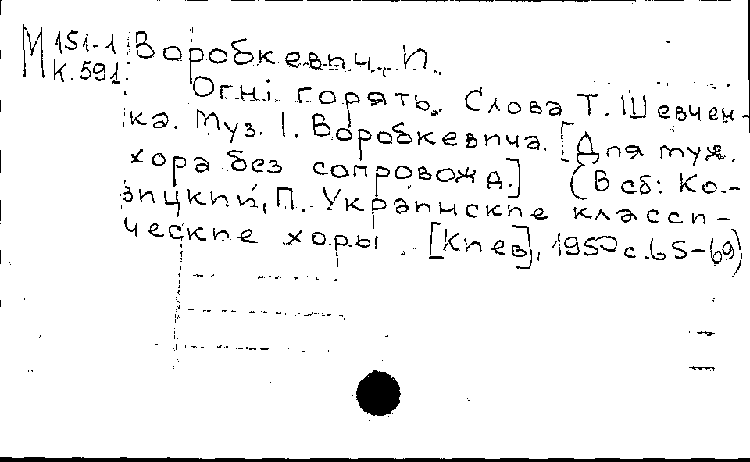 М 151-1 Воробкевич, И.
К. 591
Огні горять. Слова Т. Шевчен-
ка. Муз. І. Воробкевича. [Для муж.
хора без сопровожд.] (В сб: Ко-
зицкий, П. Украинские класси-
ческие хоры. [Киев], 1950 с. 65-69)